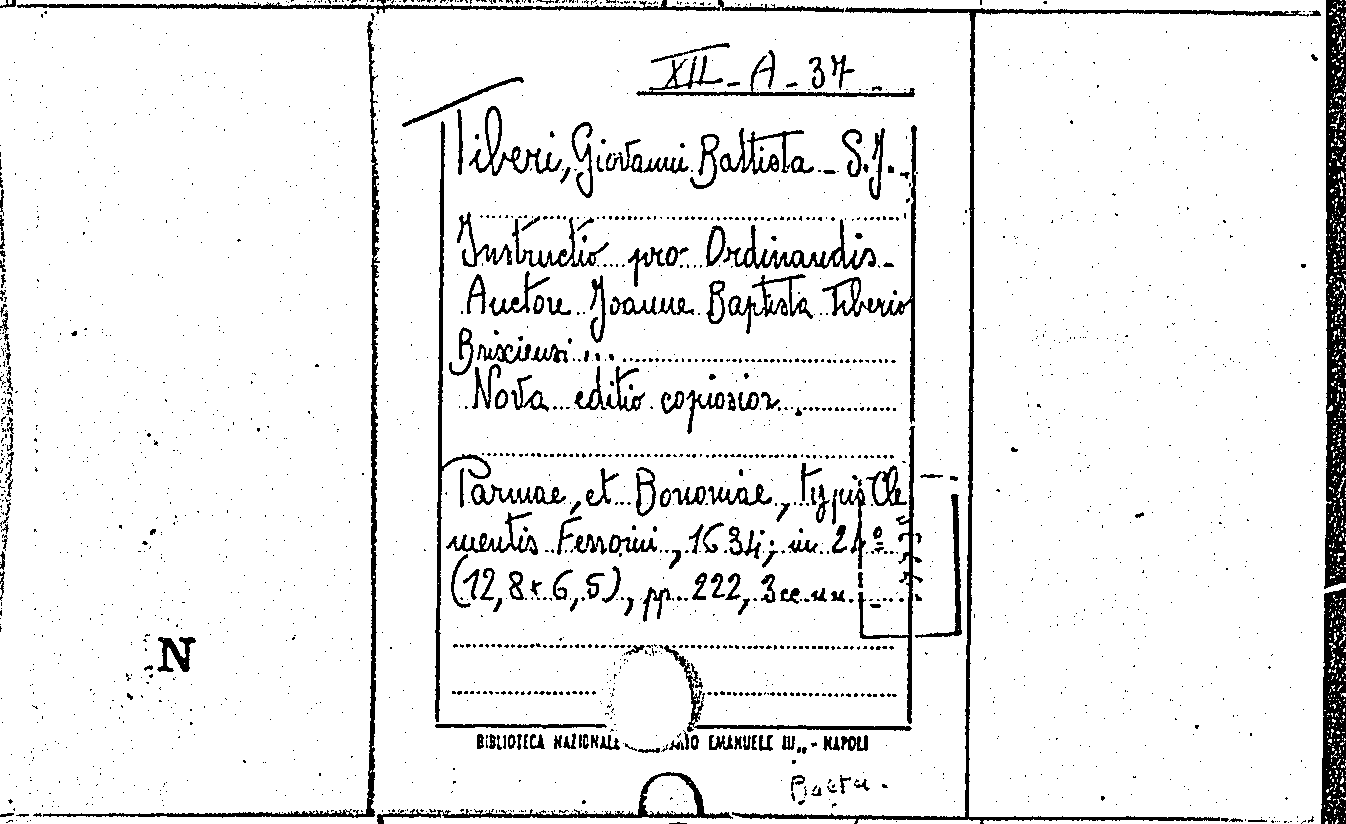 XII - A - 37
Tiberi, Giovanni Battista - S.J.
Instructio pro Ordinandis -
Auctore Joanne Baptista Tiberio
Brixiensi ...
Nova editio copiosior.
Parmae, et Bononiae, typis Cle
mentis Ferroni, 1634; in 24º
(12,8 x 6,5), pp. 222, 3 cc. nn.
N
BIBLIOTECA NAZIONALE EMANUELE III„ - NAPOLI